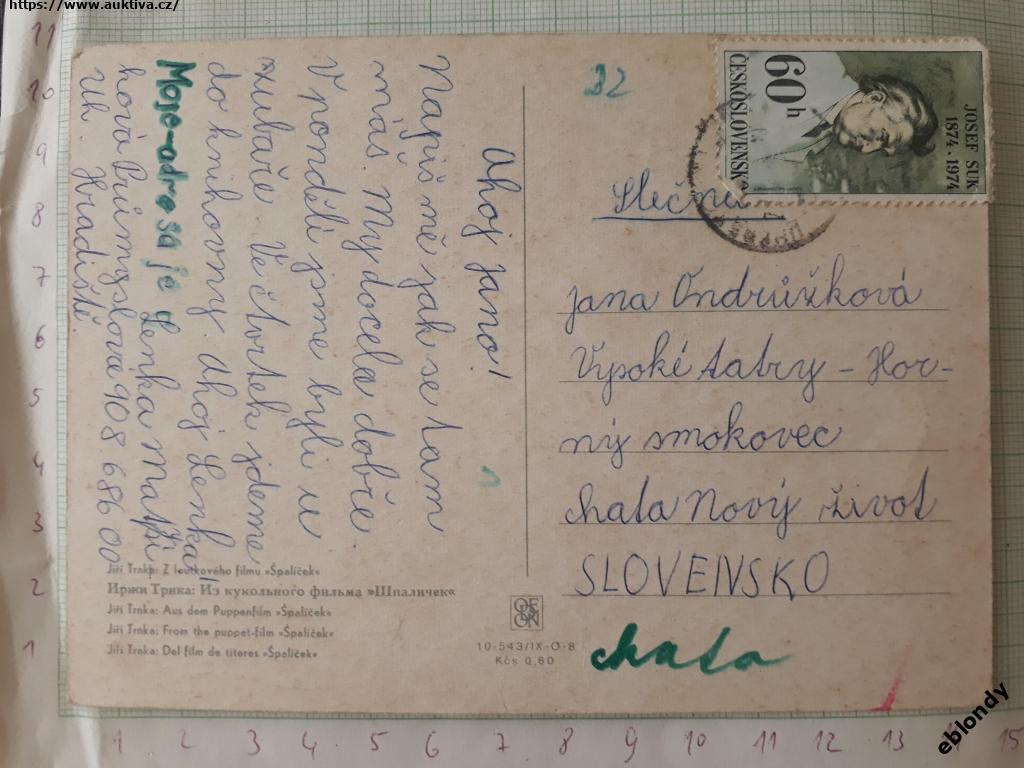 https://www.auktiva.cz/
Ahoj Jano!
Napiš mě jak se tam
máš. My docela dobře.
V pondělí jsme byli u
zubaře. Ve čtvrtek jdeme
do knihovny. Ahoj Lenka!
Moje-adresa je Lenka
hová 908 686 00
Uh. Hradiště.
32
1
JOSEF SUK
1874 · 1974
60h
ČESKOSLOVENSKO
Slečna
Jana Ondrůžková
Vysoké tatry - Hor-
ný smokovec
chata Nový život
SLOVENSKO
chata
Jiří Trnka: Z loutkového filmu »Špalíček«
Иржи Трнка: Из кукольного фильма »Шпаличек«
Jiří Trnka: Aus dem Puppenfilm »Špalíček«
Jiří Trnka: From the puppet-film »Špalíček«
Jiří Trnka: Del film de títeres »Špalíček«
10-543/IX-O-8
Kčs 0,60
11
10
9
8
7
6
5
4
3
2
1
1 2 3 4 5 6 7 8 9 10 11 12 13 15
eblondy